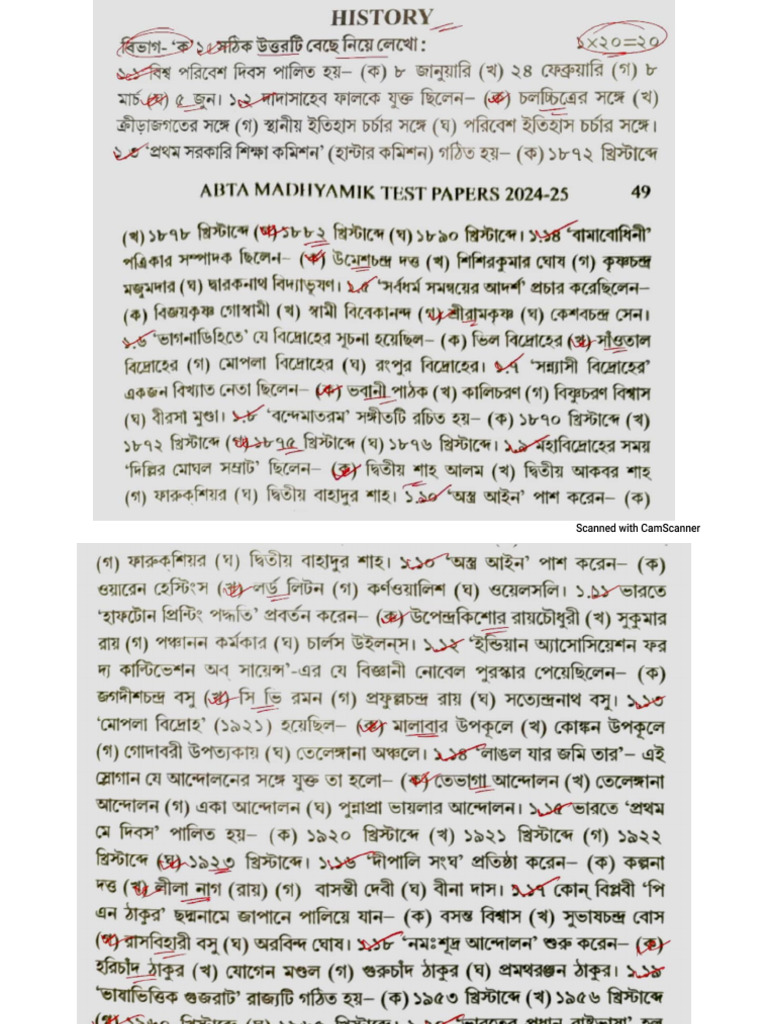 HISTORY
বিভাগ- 'ক' ১। সঠিক উত্তরটি বেছে নিয়ে লেখো : ১×২০=২০
১.১ বিশ্ব পরিবেশ দিবস পালিত হয়– (ক) ৮ জানুয়ারি (খ) ২৪ ফেব্রুয়ারি (গ) ৮
মার্চ (ঘ) ৫ জুন। ১.২ দাদাসাহেব ফালকে যুক্ত ছিলেন– (ক) চলচ্চিত্রের সঙ্গে (খ)
ক্রীড়াজগতের সঙ্গে (গ) স্থানীয় ইতিহাস চর্চার সঙ্গে (ঘ) পরিবেশ ইতিহাস চর্চার সঙ্গে।
১.৩ 'প্রথম সরকারি শিক্ষা কমিশন' (হান্টার কমিশন) গঠিত হয়– (ক) ১৮৭২ খ্রিস্টাব্দে
ABTA MADHYAMIK TEST PAPERS 2024-25 49
(খ) ১৮৭৮ খ্রিস্টাব্দে (গ) ১৮৮২ খ্রিস্টাব্দে (ঘ) ১৮৯০ খ্রিস্টাব্দে। ১.১৪ 'বামাবোধিনী'
পত্রিকার সম্পাদক ছিলেন– (ক) উমেশচন্দ্র দত্ত (খ) শিশিরকুমার ঘোষ (গ) কৃষ্ণচন্দ্র
মজুমদার (ঘ) দ্বারকনাথ বিদ্যাভূষণ। ১.৫ 'সর্বধর্ম সমন্বয়ের আদর্শ' প্রচার করেছিলেন–
(ক) বিজয়কৃষ্ণ গোস্বামী (খ) স্বামী বিবেকানন্দ (গ) শ্রীরামকৃষ্ণ (ঘ) কেশবচন্দ্র সেন।
১.৬ 'ভাগনাডিহিতে' যে বিদ্রোহের সূচনা হয়েছিল– (ক) ভিল বিদ্রোহের (খ) সাঁওতাল
বিদ্রোহের (গ) মোপলা বিদ্রোহের (ঘ) রংপুর বিদ্রোহের। ১.৭ 'সন্ন্যাসী বিদ্রোহের'
একজন বিখ্যাত নেতা ছিলেন– (ক) ভবানী পাঠক (খ) কালিচরণ (গ) বিষ্ণুচরণ বিশ্বাস
(ঘ) বীরসা মুণ্ডা। ১.৮ 'বন্দেমাতরম' সঙ্গীতটি রচিত হয়– (ক) ১৮৭০ খ্রিস্টাব্দে (খ)
১৮৭২ খ্রিস্টাব্দে (গ) ১৮৭৫ খ্রিস্টাব্দে (ঘ) ১৮৭৬ খ্রিস্টাব্দে। ১.৯ মহাবিদ্রোহের সময়
'দিল্লির মোঘল সম্রাট' ছিলেন– (ক) দ্বিতীয় শাহ আলম (খ) দ্বিতীয় আকবর শাহ
(গ) ফারুকশিয়র (ঘ) দ্বিতীয় বাহাদুর শাহ। ১.১০ 'অস্ত্র আইন' পাশ করেন– (ক)
Scanned with CamScanner
(গ) ফারুকশিয়র (ঘ) দ্বিতীয় বাহাদুর শাহ। ১.১০ 'অস্ত্র আইন' পাশ করেন– (ক)
ওয়ারেন হেস্টিংস (খ) লর্ড লিটন (গ) কর্ণওয়ালিশ (ঘ) ওয়েলসলি। ১.১১ ভারতে
'হাফটোন প্রিন্টিং পদ্ধতি' প্রবর্তন করেন– (ক) উপেন্দ্রকিশোর রায়চৌধুরী (খ) সুকুমার
রায় (গ) পঞ্চানন কর্মকার (ঘ) চার্লস উইলন্‌স। ১.১২ 'ইন্ডিয়ান অ্যাসোসিয়েশন ফর
দ্য কাল্টিভেশন অব সায়েন্স'-এর যে বিজ্ঞানী নোবেল পুরস্কার পেয়েছিলেন– (ক)
জগদীশচন্দ্র বসু (খ) সি ভি রমন (গ) প্রফুল্লচন্দ্র রায় (ঘ) সত্যেন্দ্রনাথ বসু। ১.১৩
'মোপলা বিদ্রোহ' (১৯২১) হয়েছিল– (ক) মালাবার উপকূলে (খ) কোঙ্কন উপকূলে
(গ) গোদাবরী উপত্যকায় (ঘ) তেলেঙ্গানা অঞ্চলে। ১.১৪ 'লাঙল যার জমি তার'– এই
স্লোগান যে আন্দোলনের সঙ্গে যুক্ত তা হলো– (ক) তেভাগা আন্দোলন (খ) তেলেঙ্গানা
আন্দোলন (গ) একা আন্দোলন (ঘ) পুন্নাপ্রা ভায়লার আন্দোলন। ১.১৫ ভারতে 'প্রথম
মে দিবস' পালিত হয়– (ক) ১৯২০ খ্রিস্টাব্দে (খ) ১৯২১ খ্রিস্টাব্দে (গ) ১৯২২
খ্রিস্টাব্দে (ঘ) ১৯২৩ খ্রিস্টাব্দে। ১.১৬ 'দীপালি সংঘ' প্রতিষ্ঠা করেন– (ক) কল্পনা
দত্ত (খ) লীলা নাগ (রায়) (গ) বাসন্তী দেবী (ঘ) বীনা দাস। ১.১৭ কোন্ বিপ্লবী 'পি
এন ঠাকুর' ছদ্মনামে জাপানে পালিয়ে যান– (ক) বসন্ত বিশ্বাস (খ) সুভাষচন্দ্র বোস
(গ) রাসবিহারী বসু (ঘ) অরবিন্দ ঘোষ। ১.১৮ 'নমঃশূদ্র আন্দোলন' শুরু করেন– (ক)
হরিচাঁদ ঠাকুর (খ) যোগেন মণ্ডল (গ) গুরুচাঁদ ঠাকুর (ঘ) প্রমথরঞ্জন ঠাকুর। ১.১৯
'ভাষাভিত্তিক গুজরাট' রাজ্যটি গঠিত হয়– (ক) ১৯৫৩ খ্রিস্টাব্দে (খ) ১৯৫৬ খ্রিস্টাব্দে